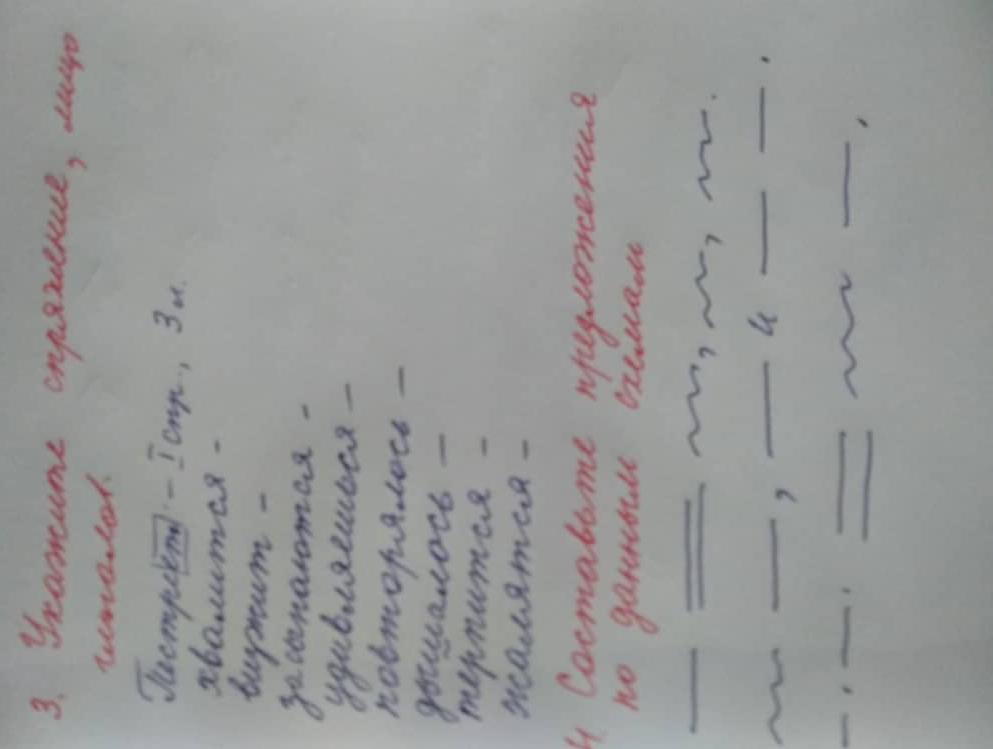 3. Укажите спряжение, лицо
глаголов.
Пестреют – I спр., 3 л.
хвалится –
визжит –
засыпаются –
удивляешься –
повторялось –
дышалось –
терпится –
жалятся –
4 Составьте предложения
по данным схемам
и